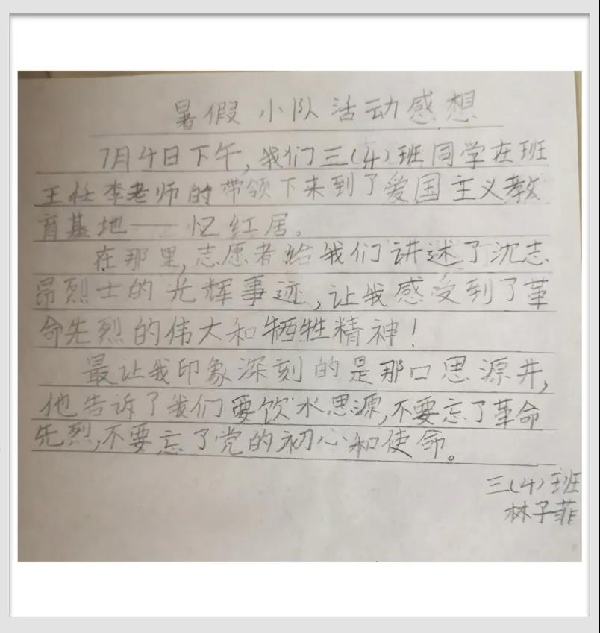 暑假小队活动感想
7月4日下午,我们三(4)班同学在班
主任李老师的带领下来到了爱国主义教
育基地——忆红居。
在那里,志愿者给我们讲述了沈志
昂烈士的光辉事迹,让我感受到了革
命先烈的伟大和牺牲精神!
最让我印象深刻的是那口思源井,
他告诉了我们要饮水思源,不要忘了革命
先烈,不要忘了党的初心和使命。
三(4)班
林子菲